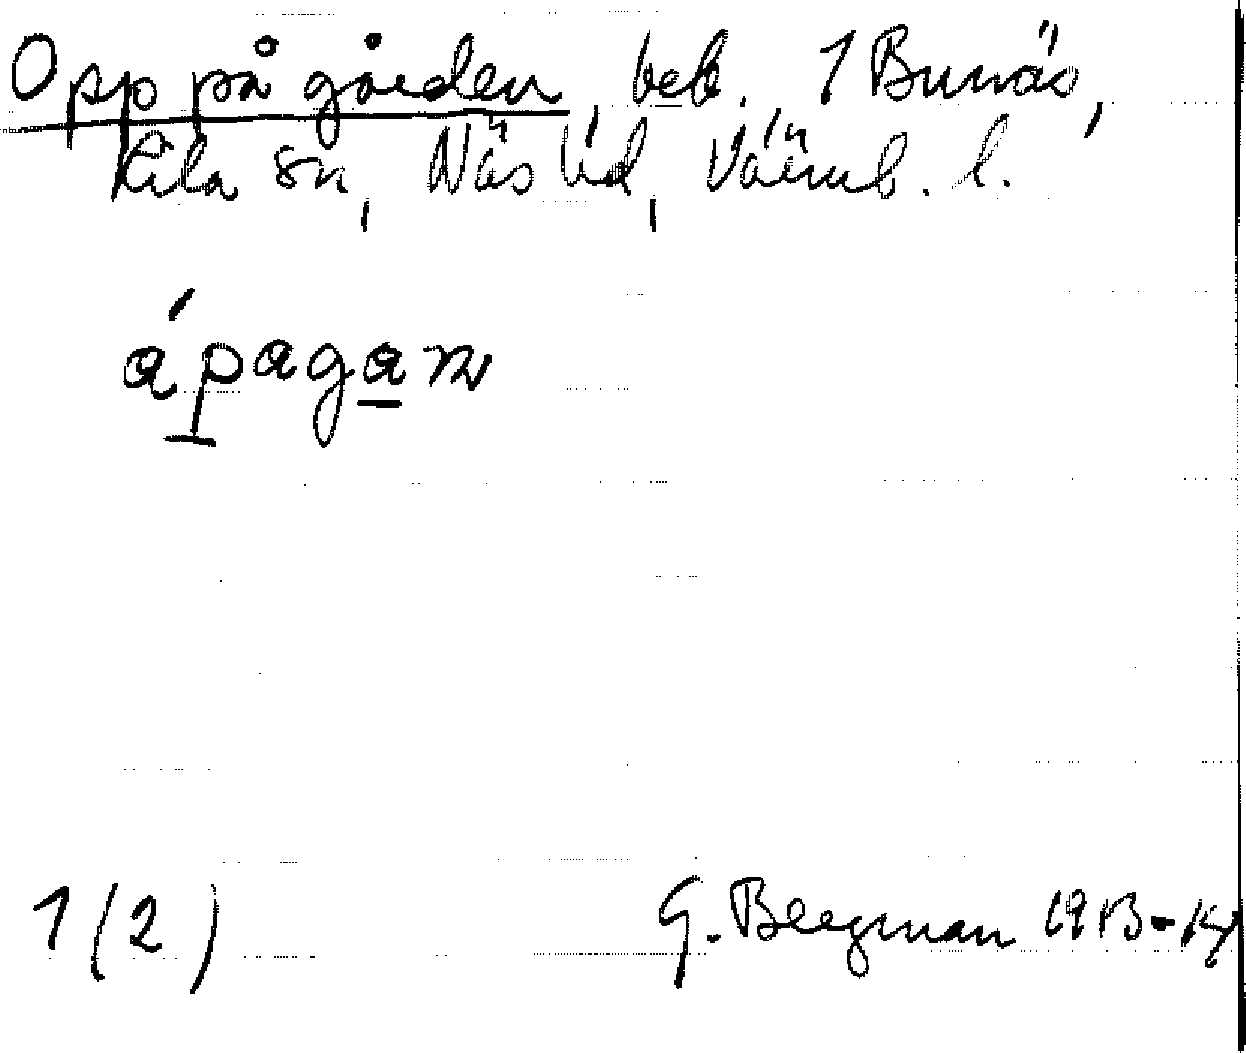 Opp på gården, beb. 1 Bunäs,
Kila sn, Näs hd, Värmb. l.
ápagan
1 (2)
G. Bergman 1913-14